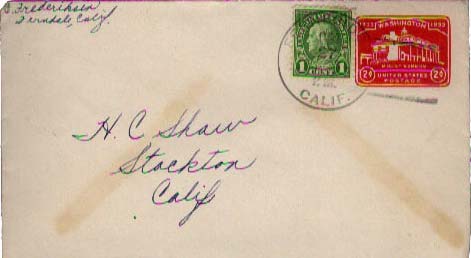 Frederiksen
Ferndale, Calif.
1 CENT 1
CALIF.
1732 WASHINGTON 1932
MOUNT VERNON
2¢ UNITED STATES 2¢
POSTAGE
H. C Shaw
Stockton
Calif